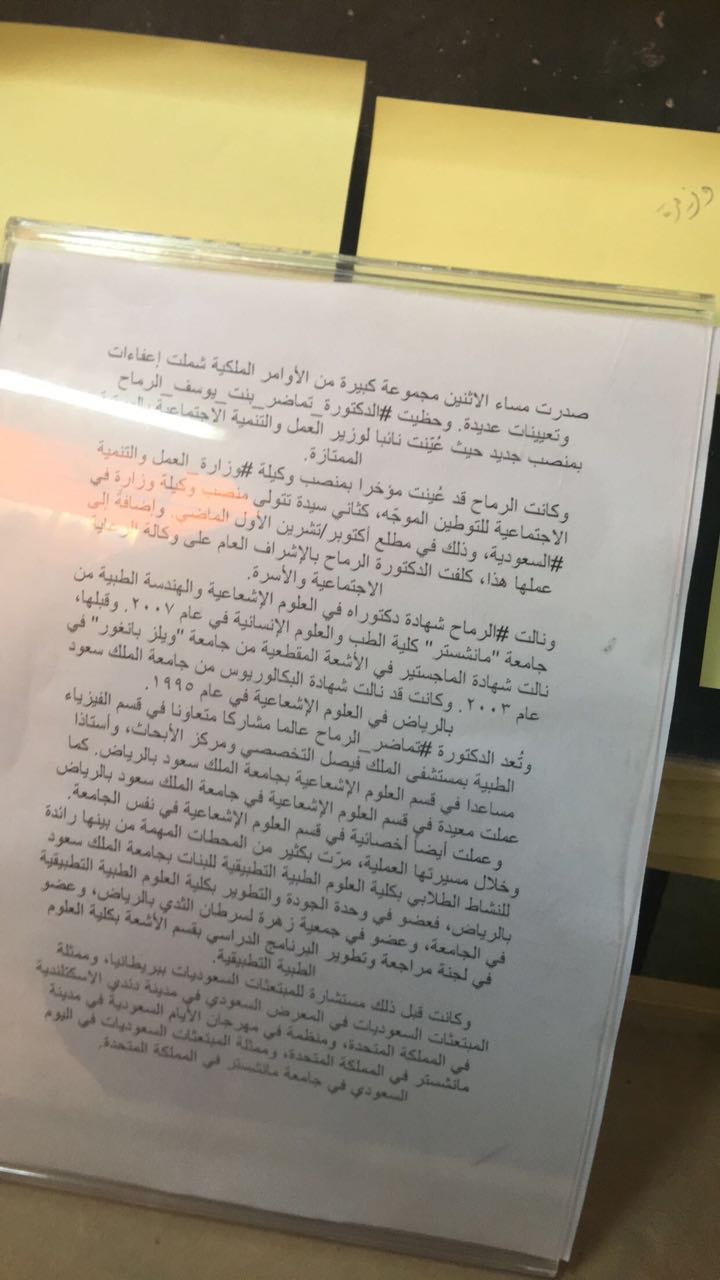 صدرت مساء الاثنين مجموعة كبيرة من الأوامر الملكية شملت إعفاءات
وتعيينات عديدة. وحظيت #الدكتورة_تماضر_بنت_يوسف_الرماح
بمنصب جديد حيث عُيّنت نائبا لوزير العمل والتنمية الاجتماعية
الممتازة.
وكانت الرماح قد عُينت مؤخرا بمنصب وكيلة #وزارة_العمل والتنمية
الاجتماعية للتوطين الموجّه، كثاني سيدة تتولى منصب وكيلة وزارة في
#السعودية، وذلك في مطلع أكتوبر/تشرين الأول الماضي. وإضافة إلى
عملها هذا، كلفت الدكتورة الرماح بالإشراف العام على وكالة الرعاية
الاجتماعية والأسرة.
ونالت #الرماح شهادة دكتوراه في العلوم الإشعاعية والهندسة الطبية من
جامعة "مانشستر" كلية الطب والعلوم الإنسانية في عام ٢٠٠٧. وقبلها،
نالت شهادة الماجستير في الأشعة المقطعية من جامعة "ويلز بانغور" في
عام ٢٠٠٣. وكانت قد نالت شهادة البكالوريوس من جامعة الملك سعود
بالرياض في العلوم الإشعاعية في عام ١٩٩٥.
وتُعد الدكتورة #تماضر_الرماح عالما مشاركا متعاونا في قسم الفيزياء
الطبية بمستشفى الملك فيصل التخصصي ومركز الأبحاث، وأستاذا
مساعدا في قسم العلوم الإشعاعية بجامعة الملك سعود بالرياض. كما
عملت معيدة في قسم العلوم الإشعاعية في جامعة الملك سعود بالرياض
وعملت أيضاً أخصائية في قسم العلوم الإشعاعية في نفس الجامعة.
وخلال مسيرتها العملية، مرّت بكثير من المحطات المهمة من بينها رائدة
للنشاط الطلابي بكلية العلوم الطبية التطبيقية للبنات بجامعة الملك سعود
بالرياض، فعضو في وحدة الجودة والتطوير بكلية العلوم الطبية التطبيقية
في الجامعة، وعضو في جمعية زهرة لسرطان الثدي بالرياض، وعضو
في لجنة مراجعة وتطوير البرنامج الدراسي بقسم الأشعة بكلية العلوم
الطبية التطبيقية.
وكانت قبل ذلك مستشارة للمبتعثات السعوديات ببريطانيا، وممثلة
المبتعثات السعوديات في المعرض السعودي في مدينة دندي الاسكتلندية
في المملكة المتحدة، ومنظمة في مهرجان الأيام السعودية في مدينة
مانشستر في المملكة المتحدة، وممثلة المبتعثات السعوديات في اليوم
السعودي في جامعة مانشستر في المملكة المتحدة.